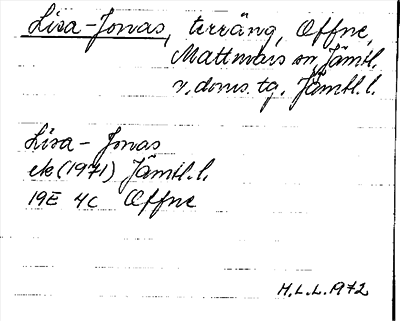 Lisa-Jonas, terräng, Offne,
Mattmars sn, Jämtl.
v. doms. tg. Jämtl. l.
Lisa-Jonas
ek (1971) Jämtl. l.
19E 4c Offne
H.L.L. 1972